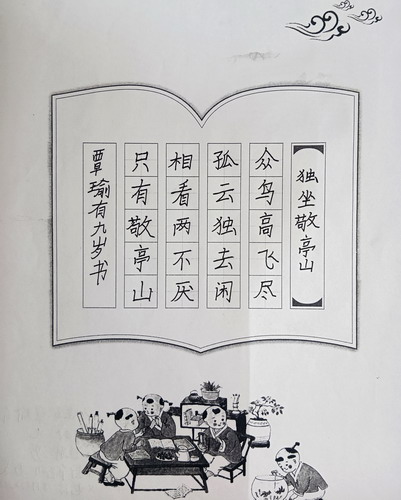 独坐敬亭山
众鸟高飞尽
孤云独去闲
相看两不厌
只有敬亭山
覃瑜有九岁书